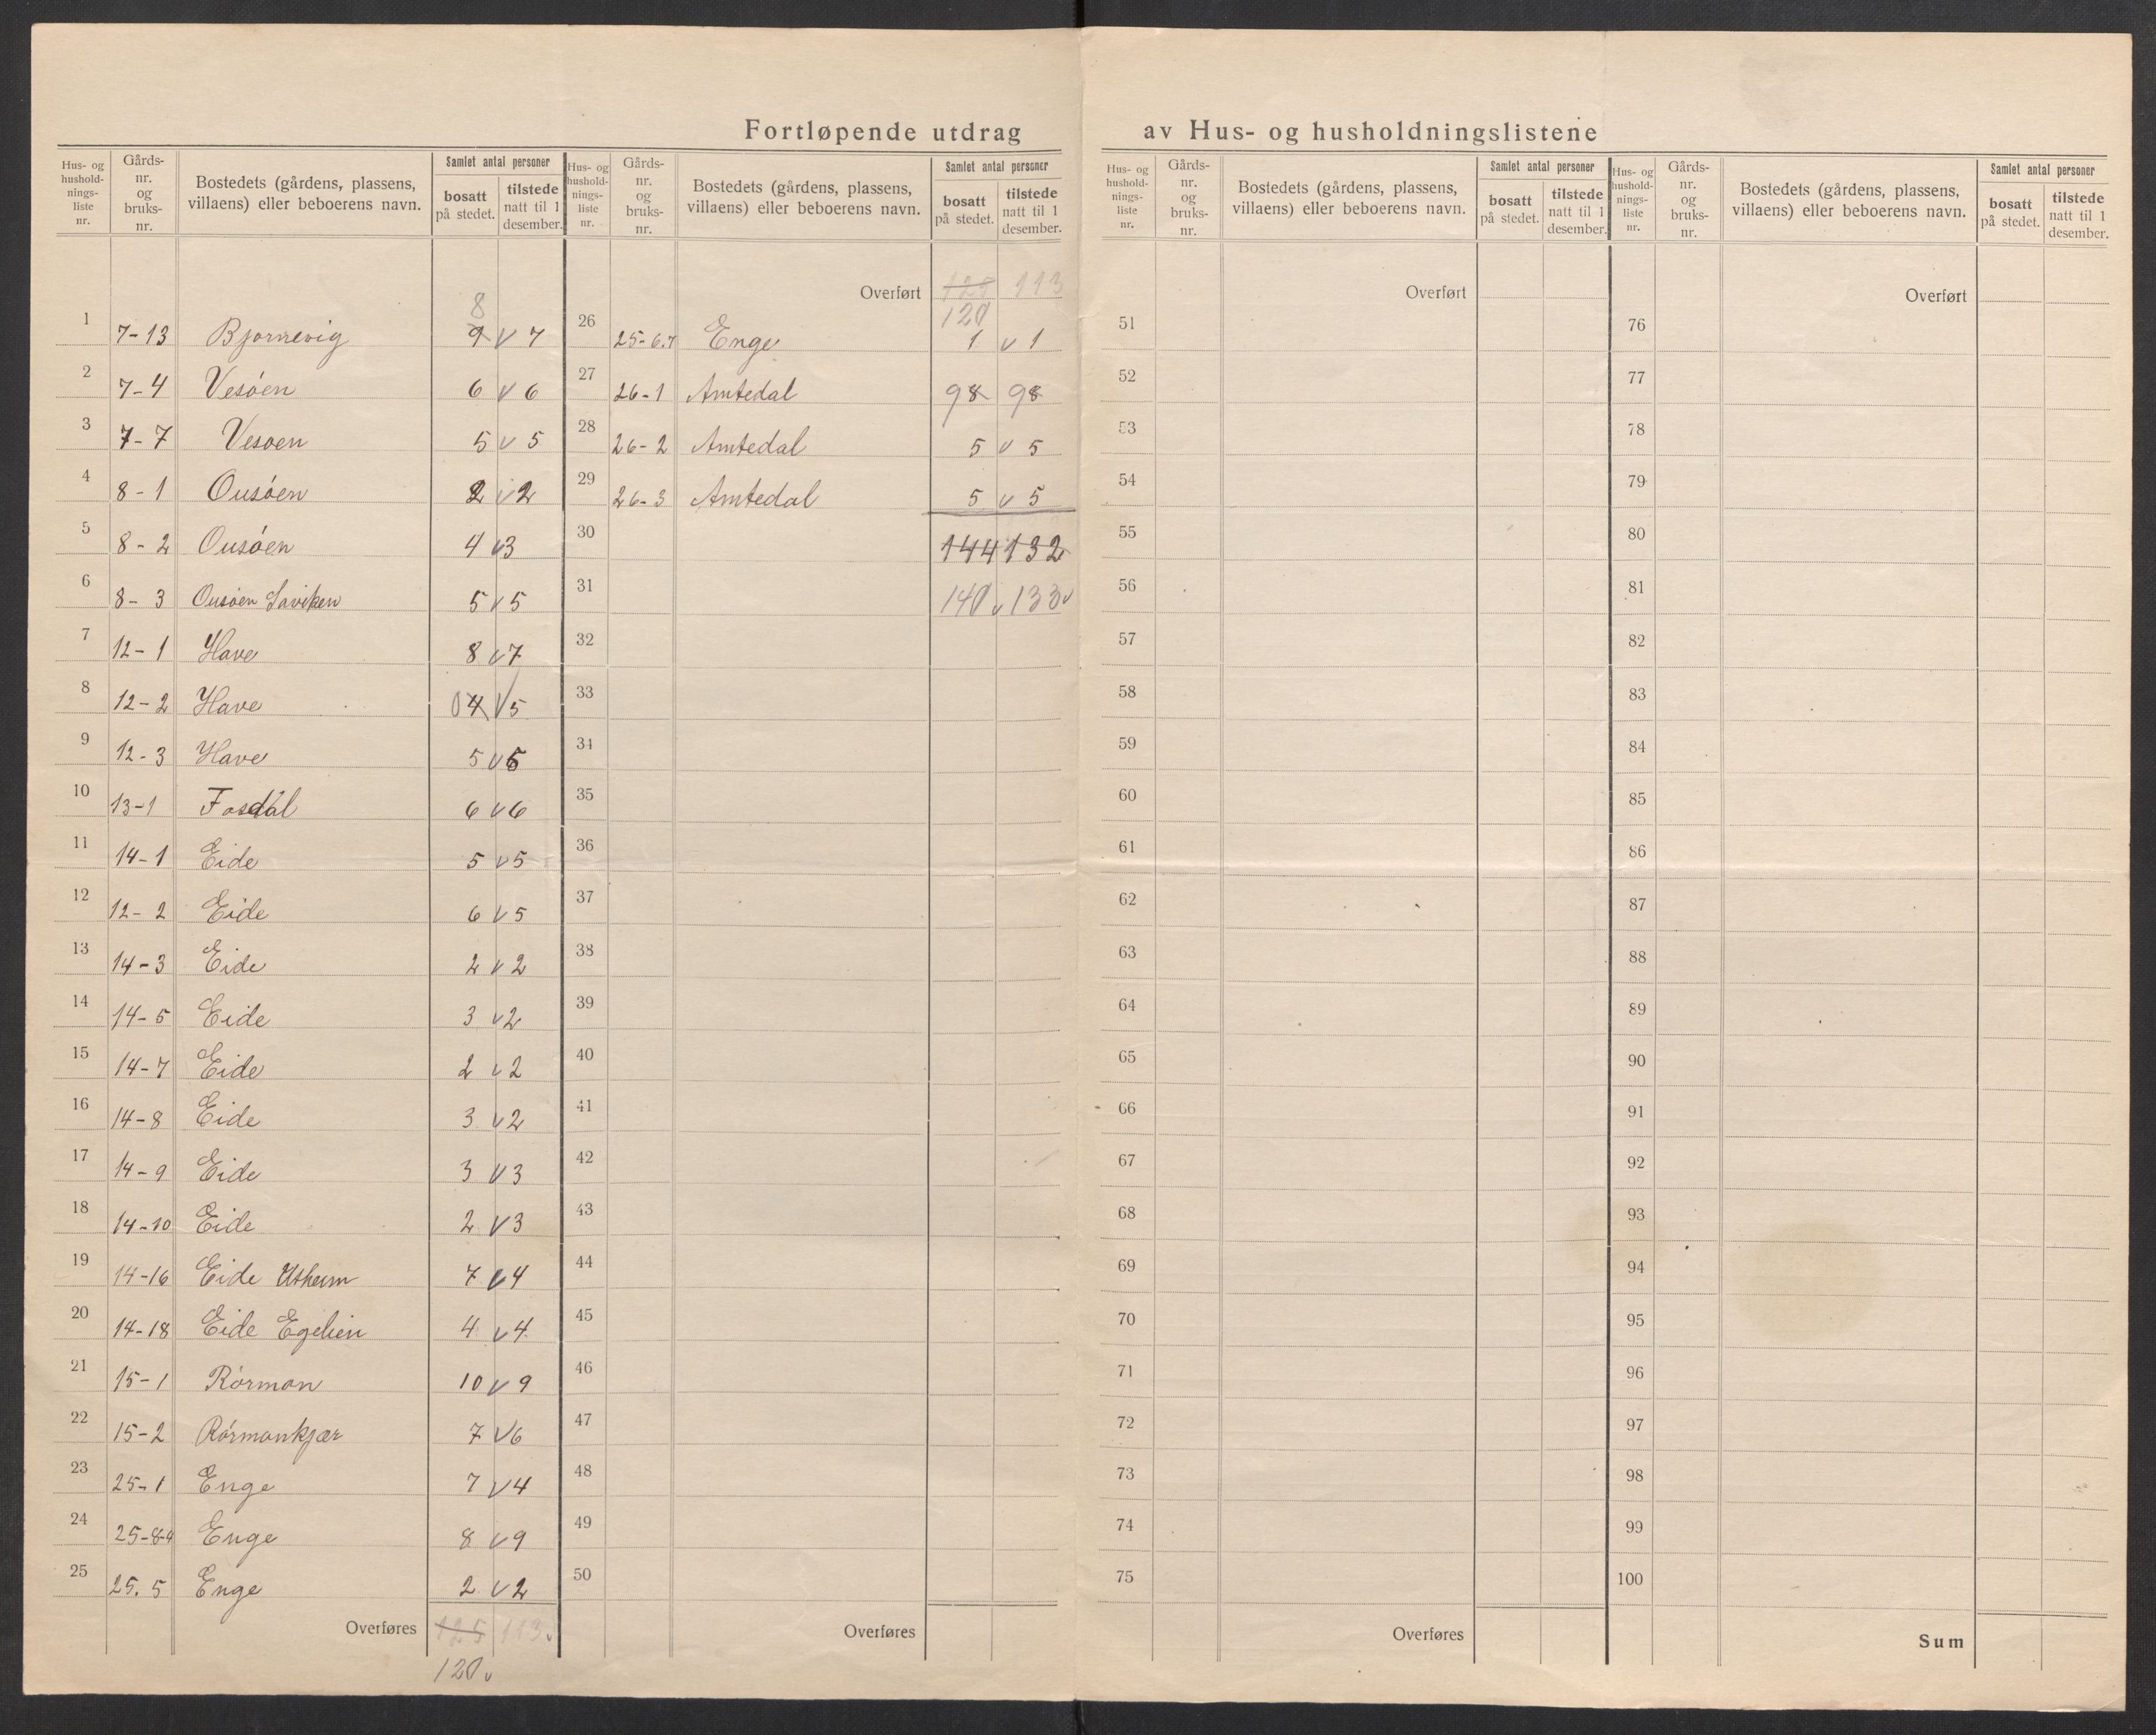 Fortløpende utdrag av Hus- og husholdningslistene
Hus- og husholdningsliste nr. | Gårds-nr. og bruks-nr. | Bostedets (gårdens, plassens, villaens) eller beboerens navn. | Samlet antal personer bosatt på stedet. | tilstede natt til 1 desember.
1 | 7-13 | Bjornevig | 9 8 v 7
2 | 7-4 | Vesóen | 6 v 6
3 | 7-7 | Vesoen | 5 v 5
4 | 8-1 | Ousóen | 2 v 2
5 | 8-2 | Ousóen | 4 v 3
6 | 8-3 | Ousóen Saviken | 5 v 5
7 | 12-1 | Have | 8 v 7
8 | 12-2 | Have | 0 4 v 5
9 | 12-3 | Have | 5 v 6
10 | 13-1 | Fosdal | 6 v 6
11 | 14-1 | Eide | 5 v 5
12 | 12-2 | Eide | 6 v 5
13 | 14-3 | Eide | 2 v 2
14 | 14-5 | Eide | 3 v 2
15 | 14-7 | Eide | 2 v 2
16 | 14-8 | Eide | 3 v 2
17 | 14-9 | Eide | 3 v 3
18 | 14-10 | Eide | 2 v 3
19 | 14-16 | Eide Utheim | 7 v 4
20 | 14-18 | Eide Egelien | 4 v 4
21 | 15-1 | Rórmon | 10 v 9
22 | 15-2 | Rórmonkjær | 7 v 6
23 | 25-1 | Enge | 7 v 4
24 | 25-8-9 | Enge | 8 v 9
25 | 25.5 | Enge | 2 v 2
Overføres 125 113 v
120 v
Hus- og husholdningsliste nr. | Gårds-nr. og bruks-nr. | Bostedets (gårdens, plassens, villaens) eller beboerens navn. | Samlet antal personer bosatt på stedet. | tilstede natt til 1 desember.
Overført 113
120
26 | 25-6.7 | Enge | 1 v 1
27 | 26-1 | Amtedal | 98 98
28 | 26-2 | Amtedal | 5 v 5
29 | 26-3 | Amtedal | 5 v 5
30 | 144 132
31 | 140 v 133 v
32
33
34
35
36
37
38
39
40
41
42
43
44
45
46
47
48
49
50
Overføres
Hus- og husholdningsliste nr. | Gårds-nr. og bruks-nr. | Bostedets (gårdens, plassens, villaens) eller beboerens navn. | Samlet antal personer bosatt på stedet. | tilstede natt til 1 desember.
Overført
51
52
53
54
55
56
57
58
59
60
61
62
63
64
65
66
67
68
69
70
71
72
73
74
75
Overføres
Hus- og husholdningsliste nr. | Gårds-nr. og bruks-nr. | Bostedets (gårdens, plassens, villaens) eller beboerens navn. | Samlet antal personer bosatt på stedet. | tilstede natt til 1 desember.
Overført
76
77
78
79
80
81
82
83
84
85
86
87
88
89
90
91
92
93
94
95
96
97
98
99
100
Sum